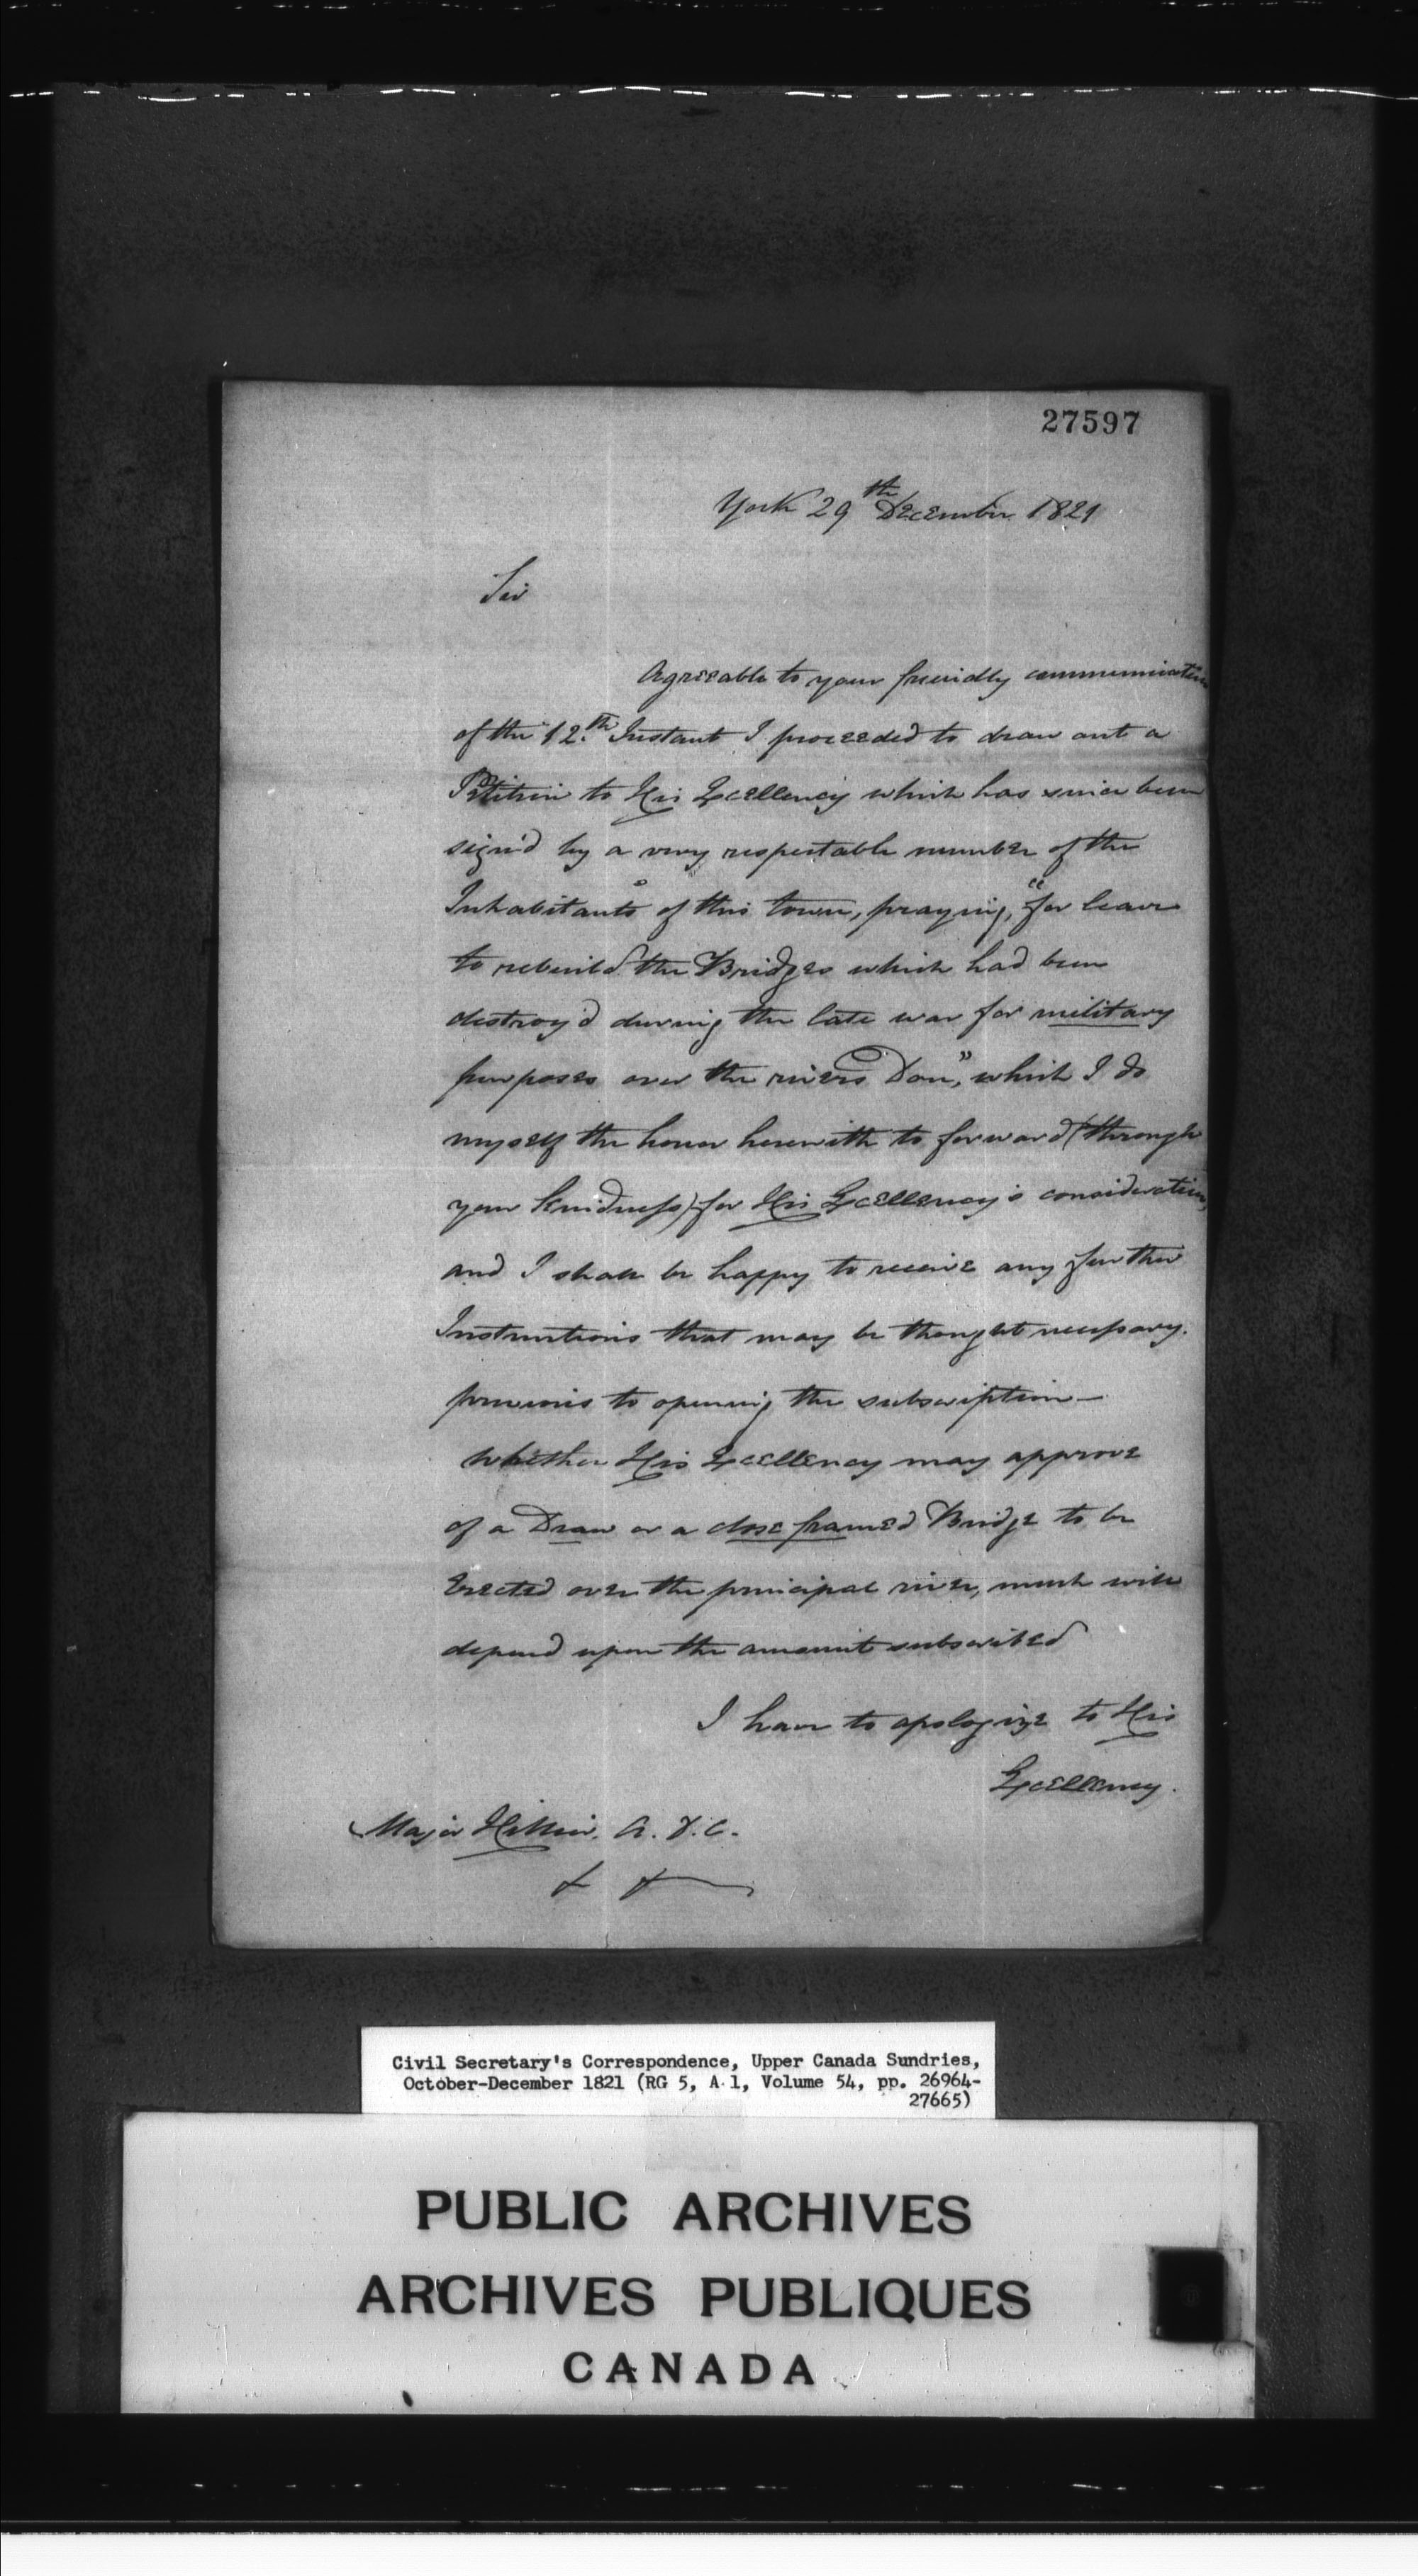 27597
York 29th December 1821
Sir
Agreeable to your friendly communication
of the 12.th Instant I proceeded to draw out a
Petition to His Excellency which has since been
sign'd by a very respectable number of the
Inhabitants of this town, praying, "for leave
to rebuild the Bridges which had been
destroy'd during the late war for military
purposes over the rivers Don", which I do
myself the honor herewith to forward (through
your kindness) for His Excellency's consideration,
and I shall be happy to receive any further
Instructions that may be thought necessary.
previous to opening the subscription—
Whether His Excellency may approve
of a Draw or a close framed Bridge to be
Erected over the principal river, much will
depend upon the amount subscribed
I have to apologize to His
Excellency.
Major Hillier. A.D.C.
& &
Civil Secretary's Correspondence, Upper Canada Sundries,
October-December 1821 (RG 5, A 1, Volume 54, pp. 26964-
27665)
PUBLIC ARCHIVES
ARCHIVES PUBLIQUES
CANADA